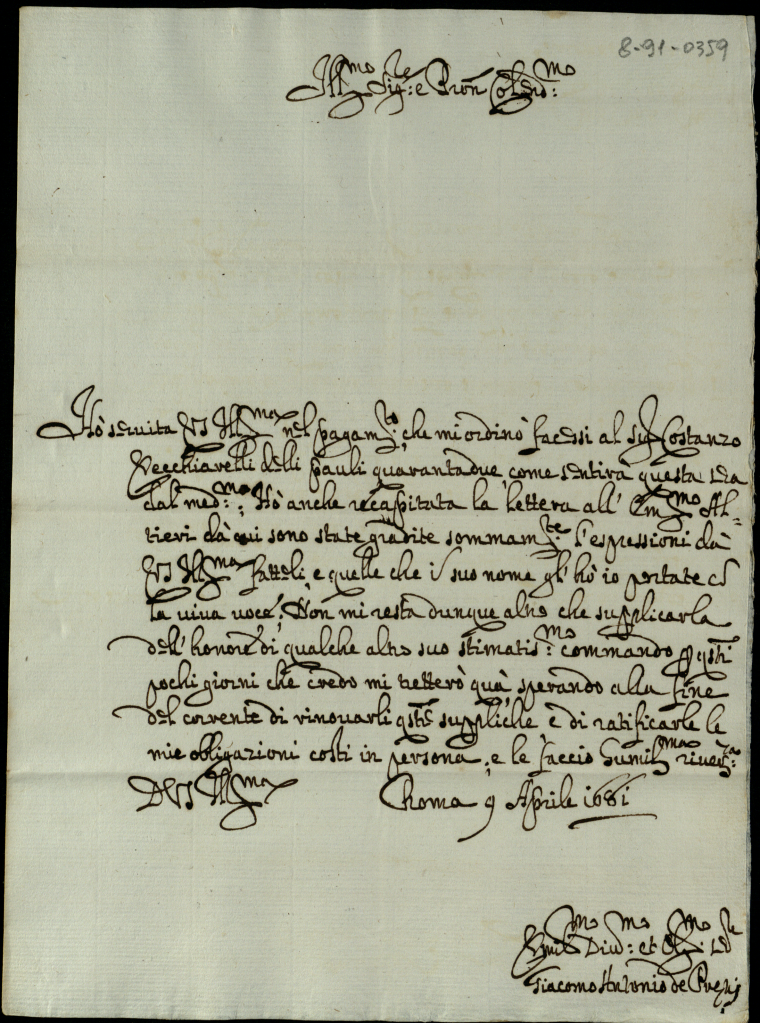 8-91-0359
Ill.mo Sig.re e Pron Col.mo
Hò seruita VS Ill.ma nel pagam.to, che mi ordinò facessi al Sig.r Costanzo
Vecchiarelli delli pauli quarantadue, come sentirà questa sera
dal med.mo; Hò anche recapitata la lettera all' Em.mo Al-
tieri dà cui sono state gradite sommam.te l'espressioni dà
VS Ill.ma fatteli, e quelle che i suo nome gl' hò io portate cō
la uiua uoce; Non mi resta dunque altro che supplicarla
dell' honore di qualche altro suo stimatis.mo commando p qsti
pochi giorni che credo mi tratterrò quà, sperando alla fine
del corrente di rinouarli qste suppliche e di ratificarle le
mie obbligazioni costi in persona, e le faccio humil.ma riuer.za
D VS Ill.ma Roma 9 Aprile 1681
Humil.mo Diu.mo et Obl.mo Ser.re
Giacomo Antonio de